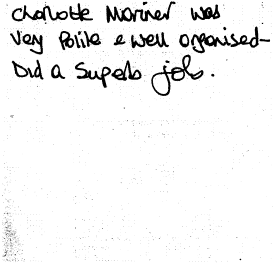 Charlotte Mariner was
Very Polite & well organised-
Did a Superb job.